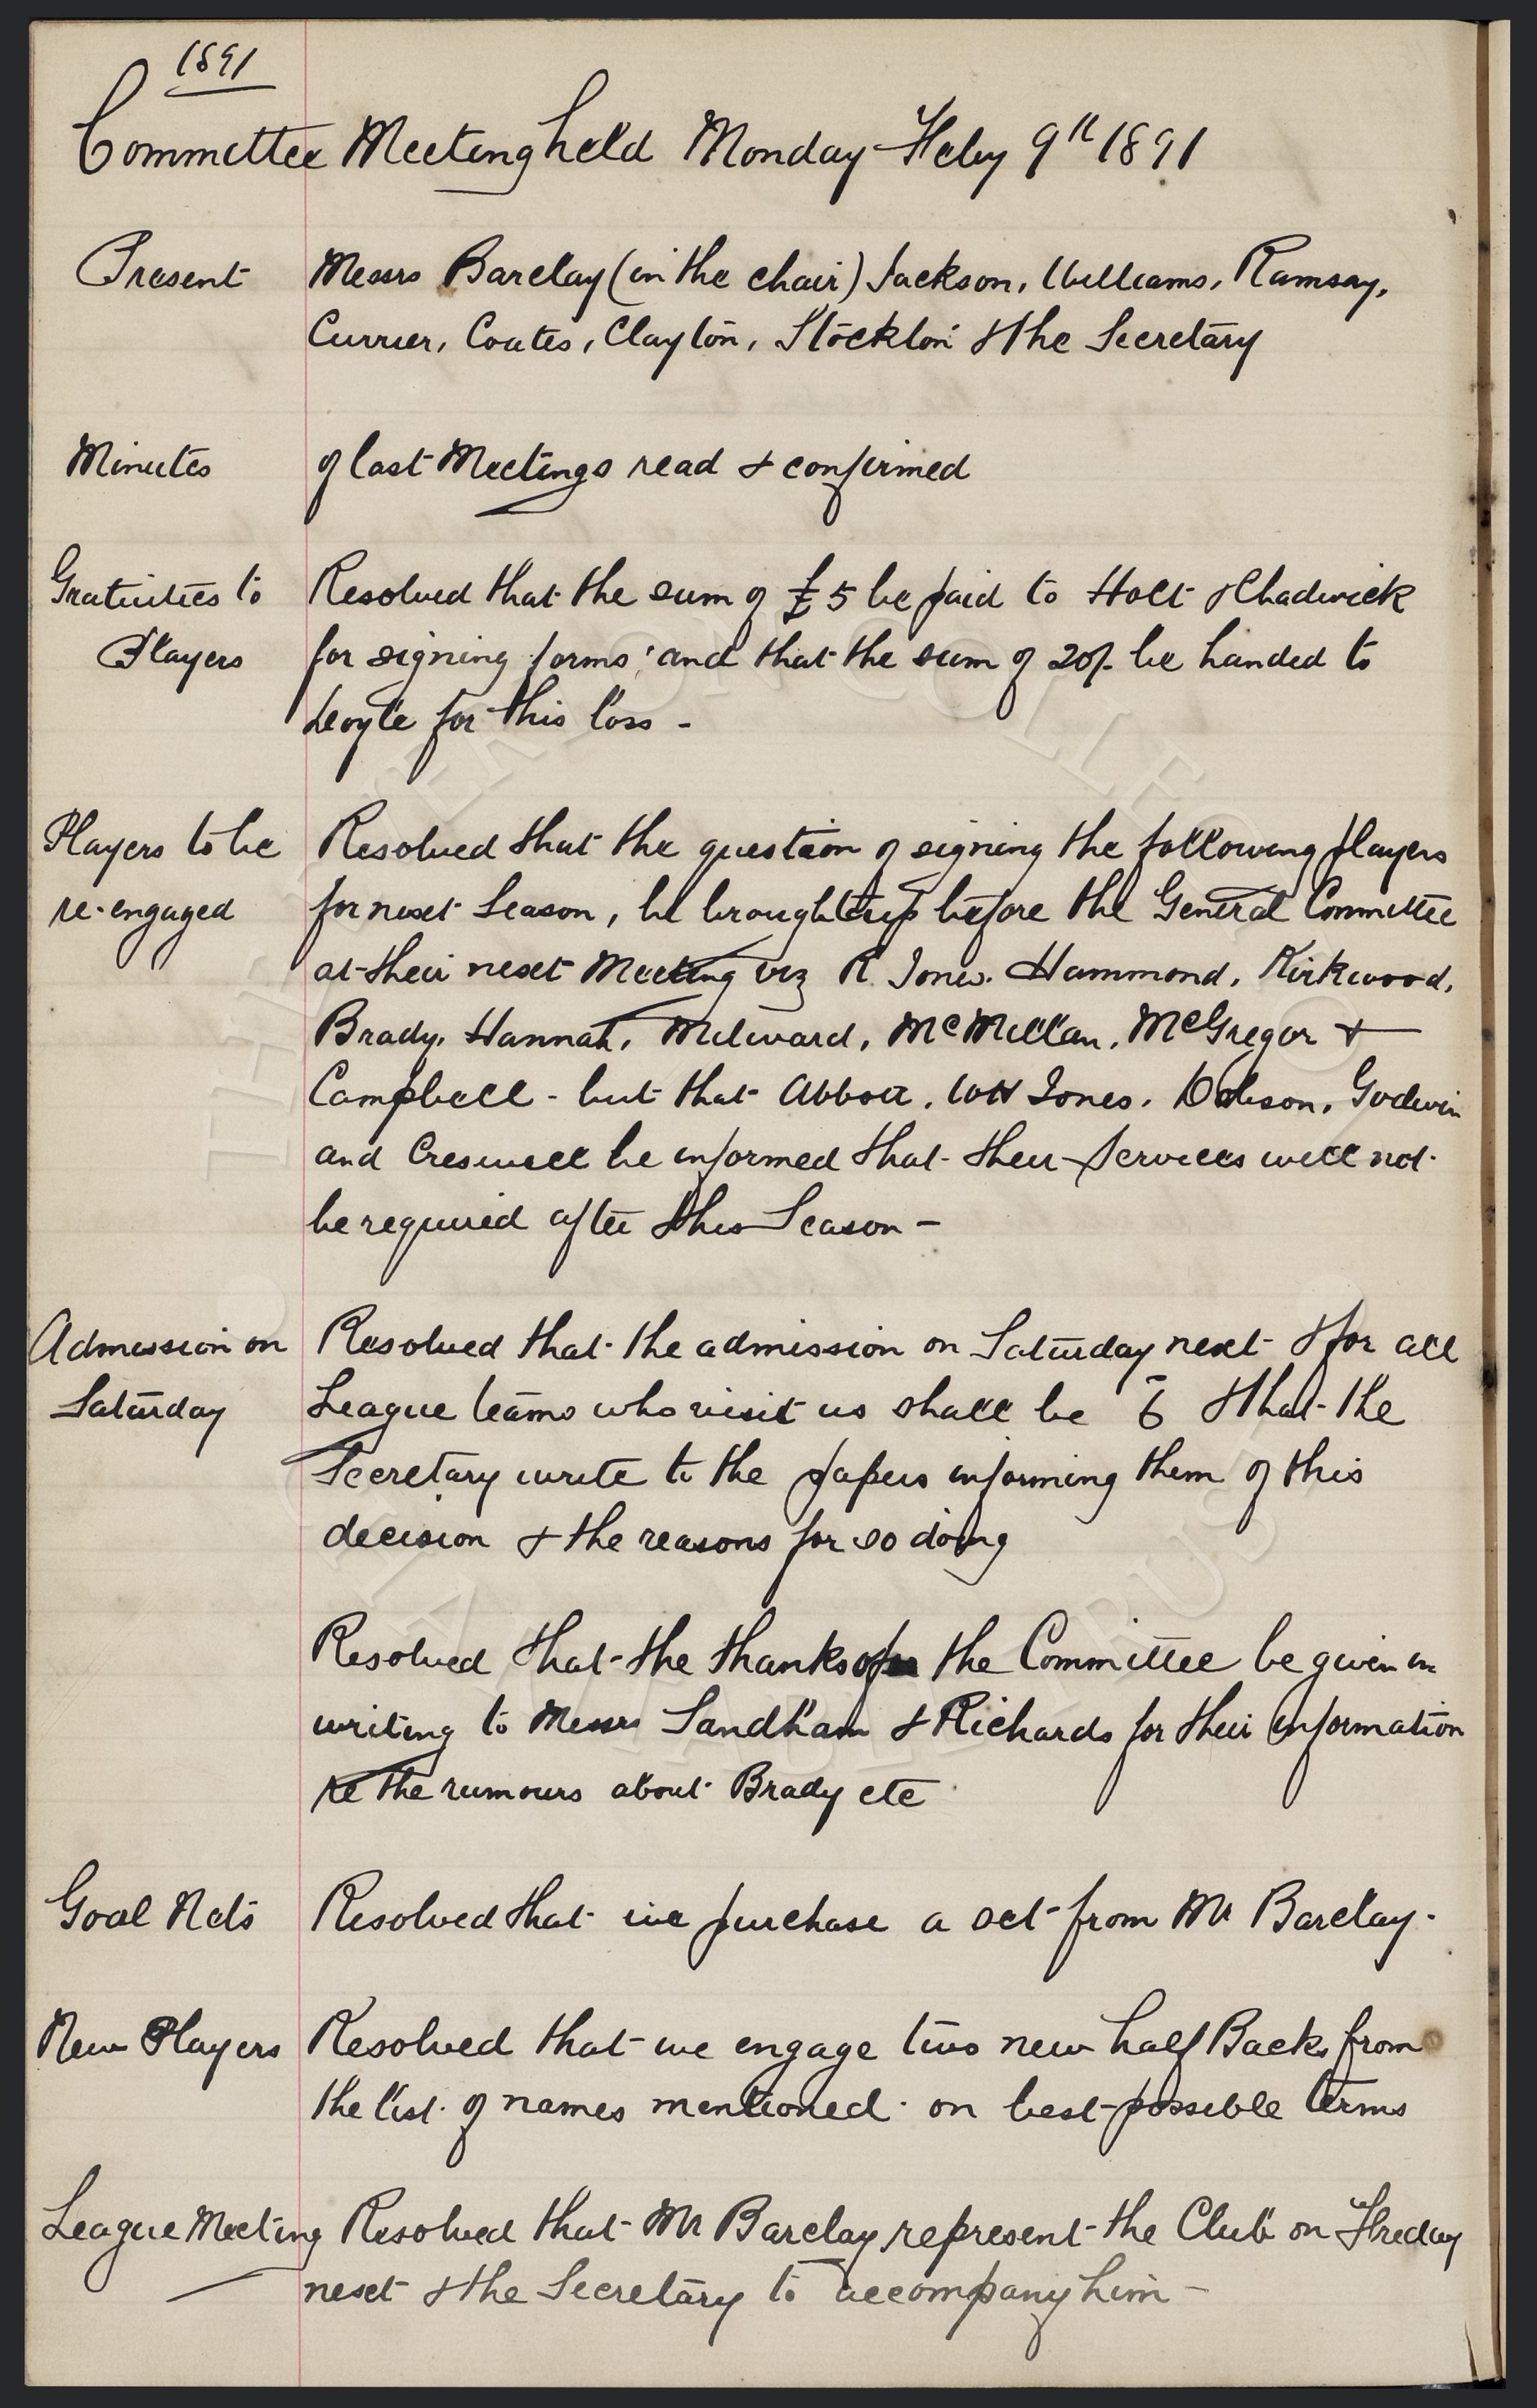 1891
Committee Meeting held Monday Feby 9th 1891
Present Messrs Barclay (in the chair) Jackson, Williams, Ramsay,
Currier, Coates, Clayton, Stockton & the Secretary
Minutes of last Meetings read & confirmed
Gratuities to Resolved that the sum of £5 be paid to Holt & Chadwick
Players for signing forms; and that the sum of 20/- be handed to
Doyle for this loss -
Players to be Resolved that the question of signing the following players
re-engaged for next Season, be brought up before the General Committee
at their next Meeting viz R. Jones. Hammond, Kirkwood,
Brady, Hannah, Milward, McMillan, McGregor &
Campbell - but that Abbott, WH Jones, Dobson, Godwin
and Creswell be informed that their Services will not
be required after this Season -
Admission on Resolved that the admission on Saturday next & for all
Saturday League teams who visit us shall be 6 & that the
Secretary write to the papers informing them of this
decision & the reasons for so doing
Resolved that the thanks of the Committee be given in
writing to Messrs Sandham & Richards for their information
re the rumours about Brady etc
Goal Nets Resolved that we purchase a set from Mr Barclay.
New Players Resolved that we engage two new half Backs from
the list of names mentioned on best possible terms
League Meeting Resolved that Mr Barclay represent the Club on Friday
next & the Secretary to accompany him -
THE EVERTON COLLECTION
CHARITABLE TRUST